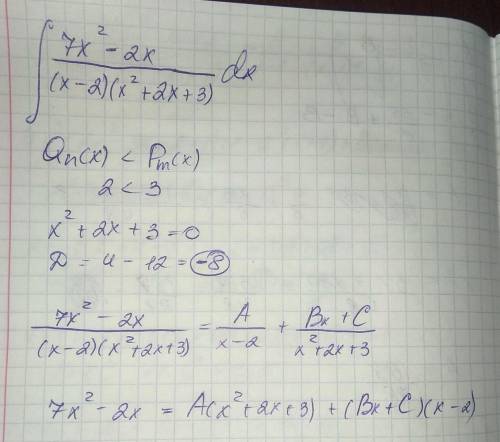 ∫ (7x² - 2x)/((x-2)(x²+2x+3)) dx
Qn(x) < Pm(x)
2 < 3
x² + 2x + 3 = 0
D = 4 - 12 = -8
(7x² - 2x)/((x-2)(x²+2x+3)) = A/(x-2) + (Bx + C)/(x²+2x+3)
7x² - 2x = A(x²+2x+3) + (Bx+C)(x-2)